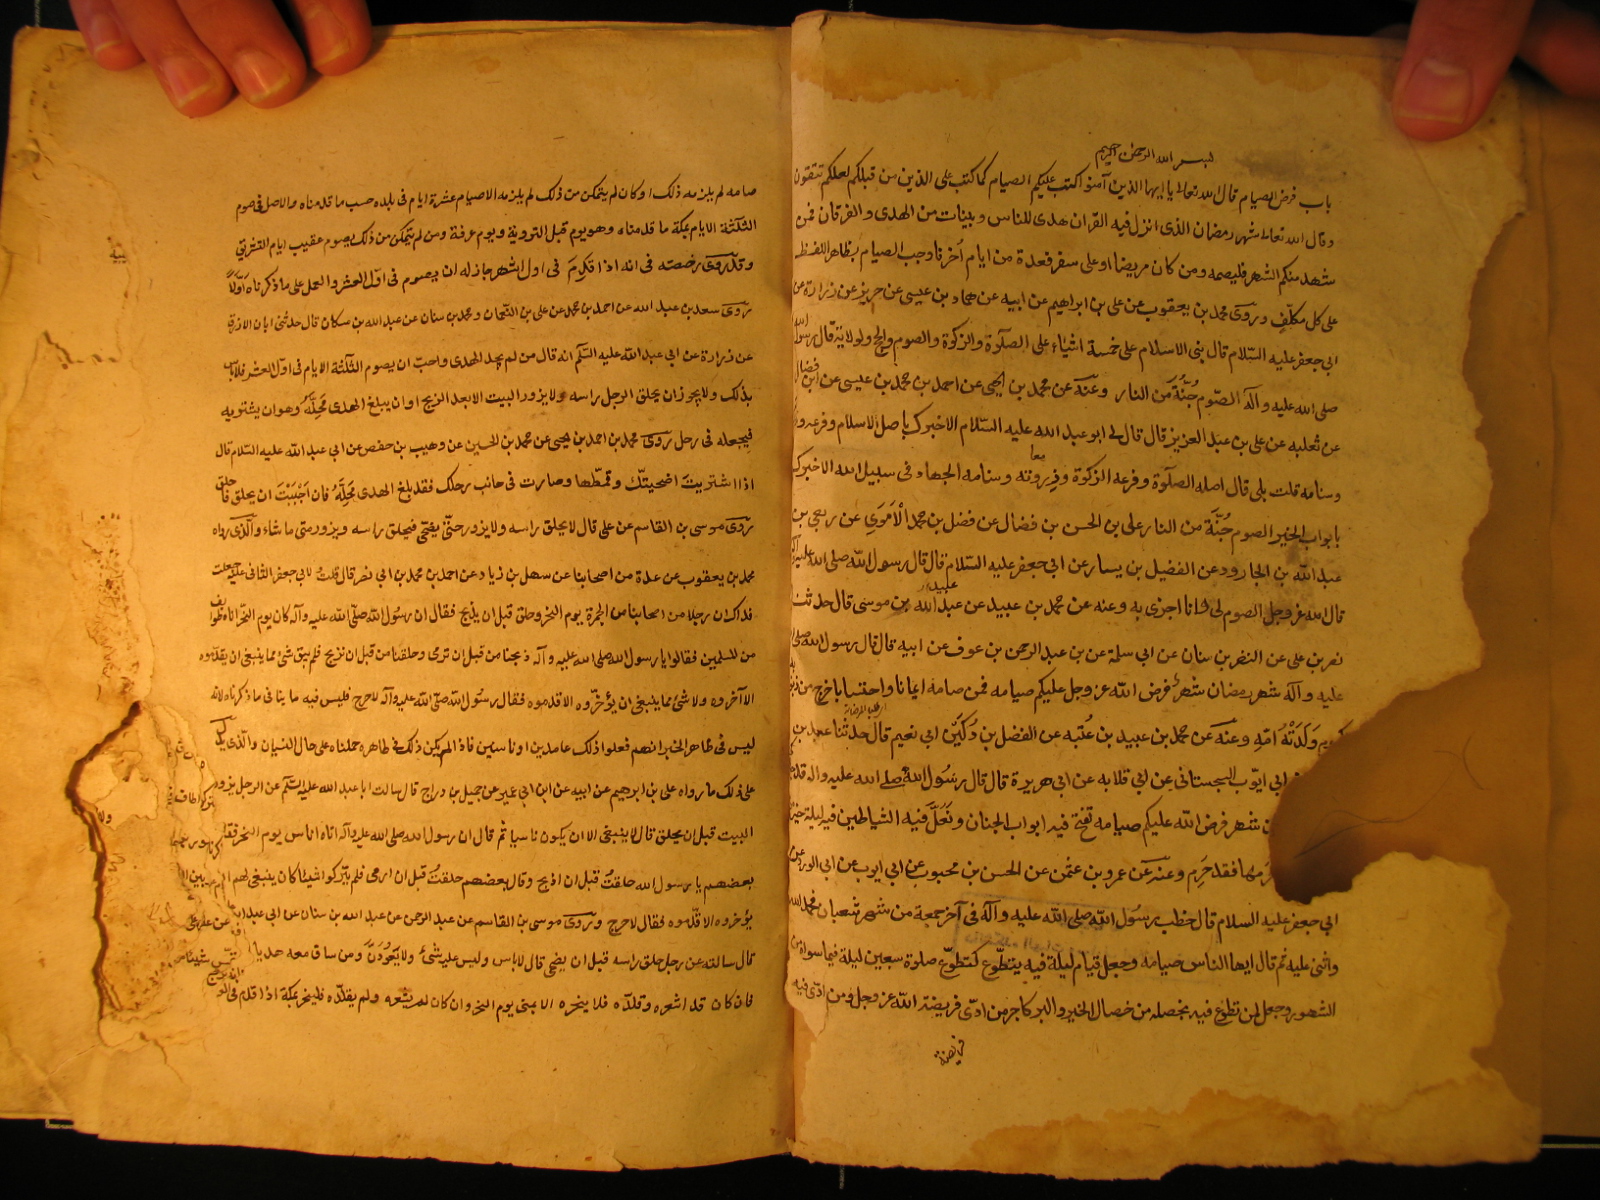 بسم الله الرحمن الرحيم
باب فرض الصيام قال الله تعالى يا ايها الذين آمنوا كتب عليكم الصيام كما كتب على الذين من قبلكم لعلكم تتقون
وقال الله تعالى شهر رمضان الذى انزل فيه القرآن هدى للناس وبينات من الهدى والفرقان فمن
شهد منكم الشهر فليصمه ومن كان مريضا او على سفر فعدة من ايام أخر فاوجب الصيام بظاهر اللفظ
على كل مكلّف وروى محمد بن يعقوب عن على بن ابراهيم عن ابيه عن حماد بن عيسى عن حريز عن زرارة عن
ابى جعفر عليه السّلام قال بنى الاسلام على خمسة اشياء على الصلوة والزكوة والصوم والحج والولاية قال رسول الله
صلى الله عليه وآله الصّوم جُنّة من النار وعنه عن محمد بن يحيى عن احمد بن محمد بن عيسى عن ابن فضال
عن ثعلبه عن على بن عبد العزيز قال قال لى ابو عبد الله عليه السّلام الا اخبرك باصل الاسلام وفرعه و
وسنامه قلت بلى قال اصله الصلوة وفرعه الزكوة وذروته وسنامه الجهاد فى سبيل الله الا اخبرك
بابواب الخير الصوم جُنّة من النار على بن الحسن بن فضال عن فضل بن محمد الاموى عن ربعى بن
عبد الله بن الجارود عن الفضيل بن يسار عن ابى جعفر عليه السّلام قال قال رسول الله صلى الله عليه وآله
قال الله عز وجل الصوم لى وانا اجزى به وعنه عن محمد بن عبيد عن عبد الله بن موسى قال حدثنا
نصر بن على عن النضر بن سنان عن ابى سلمة عن بن عبد الرحمن بن عوف عن ابيه قال قال رسول الله صلى
عليه وآله شهر رمضان شهر فرض الله عز وجل عليكم صيامه فمن صامه ايمانا واحتسابا خرج من
وَلَدَتْهُ امّه وعنه عن محمد بن عبيد بن عُتبه عن الفضل بن دُكَيْن ابى نعيم قال حدثنا
ابى ايّوب السجستانى عن ابى قلابه عن ابى هريرة قال قال رسول الله صلى الله عليه وآله
شهر فرض الله عليكم صيامه تفتح فيه ابواب الجنان وتُغلّ فيه الشياطين فيه ليلة خير
فقد حَرِم وعنه عن عمرو بن عثمن عن الحسن بن محبوب عن ابى ايوب عن ابى الورد عن
ابى جعفر عليه السلام قال خطب رسول الله صلى الله عليه وآله فى آخر جمعة من شهر شعبان فحمد الله
واثنى عليه ثم قال ايها الناس صيامه وجعل قيام ليلة فيه بتطوّع كتطوّع صلوة سبعين ليلة فيما سواه من
الشهور وجعل لمن تطوع فيه بخصلة من خصال الخير والبر كاجر من ادّى فريضة الله عز وجل ومن ادّى فيه
فريضة
صامه لم يلزمه ذلك او كان لم يتمكن من ذلك لم يلزمه الا صيام عشرة ايام فى بلده حسب ما قدمناه والاصل فى صوم
الثلثة الايام بمكة ما قدمناه وهو يوم قبل التروية ويوم عرفة ومن لم يتمكن من ذلك يصوم عقيب ايام التشريق
وقد روى رخصته فى انه اذا قَدِمَ فى اول الشهر جاز له ان يصوم فى اوّل العشر والعمل على ما ذكرناه اوّلاً
روى سعد بن عبد الله عن احمد بن محمد عن على بن النعمان ومحمد بن سنان عن عبد الله بن مسكان قال حدثنى ابان الازرق
عن زرارة عن ابى عبد الله عليه السّلم انه قال من لم يجد الهدى واحبّ ان يصوم الثّلثة الايام فى اوّل العشر فلا باس
بذلك ولا يجوز ان يحلق الرجل راسه ولا يزور البيت الا بعد الذبح او ان يبلغ الهدى مَحِلَّهُ وهو ان يشتريه
فيجعله فى رحله روى محمد بن احمد بن يحيى عن محمد بن الحسين عن وهيب بن حفص عن ابى عبد الله عليه السّلام قال
اذا اشتريت اضحيتك وقمطتها وصارت فى جانب رحلك فقد بلغ الهدى مَحِلَّهُ فان احْبَبْتَ ان يحلق فاحلق
روى موسى بن القاسم عن على قال لا يحلق راسه ولا يزور حتّى يضحّى فيحلق راسه ويزور متى ما شاء والّذى رواه
محمد بن يعقوب عن عدة من اصحابنا عن سهل بن زياد عن احمد بن محمد بن ابى نصر قال قلتُ لابى جعفر الثانى عليه جعلت
فداك ان رجلا من اصحابنا رمى الجمرة يوم النحر وحلق قبل ان يذبح فقال ان رسول الله صلى الله عليه وآله كان يوم النحر اتاه طوايف
من المسلمين فقالوا يا رسول الله صلى الله عليه وآله ذبحنا من قبل ان نرمى وحلقنا من قبل ان نذبح فلم يبق شئ مما ينبغى ان يقدّموه
الا اخّروه ولا شئ مما ينبغى ان يؤخّروه الا قدموه فقال رسول الله صلى الله عليه وآله لا حرج فليس فيه ما ينافى ما ذكرناه لانه
ليس فى ظاهر الخبر انهم فعلوا ذلك عامدين او ناسين فاذا لم يكن ذلك فى ظاهره حملناه على حال النسيان والّذى يدل
على ذلك ما رواه على بن ابرهيم عن ابيه عن ابن ابى عمير عن جميل بن دراج قال سالت ابا عبد الله عليه السّلم عن الرجل يزور
البيت قبل ان يحلق قال لا ينبغى الا ان يكون ناسيا ثم قال ان رسول الله صلى الله عليه وآله اتاه اناس يوم النحر فقال
بعضهم يا رسول الله حلقتُ قبل ان اذبح وقال بعضهم حلقتُ قبل ان ارمى فلم يتركوا شيئا كان ينبغى لهم ان
يؤخروه الا قدّموه فقال لا حرج وروى موسى بن القاسم عن عبد الرحمن عن عبد الله بن سنان عن ابى عبد الله
قال سالته عن رجل حلق راسه قبل ان يضحى قال لا باس وليس عليه شئ ولا يَعُودَنّ ومن ساق معه هديا
فان كان قد اشعره وقلّده فلا ينحره الا بمنى يوم النحر وان كان لم يشعره ولم يقلّده فلينحر بمكة اذا قدم فى